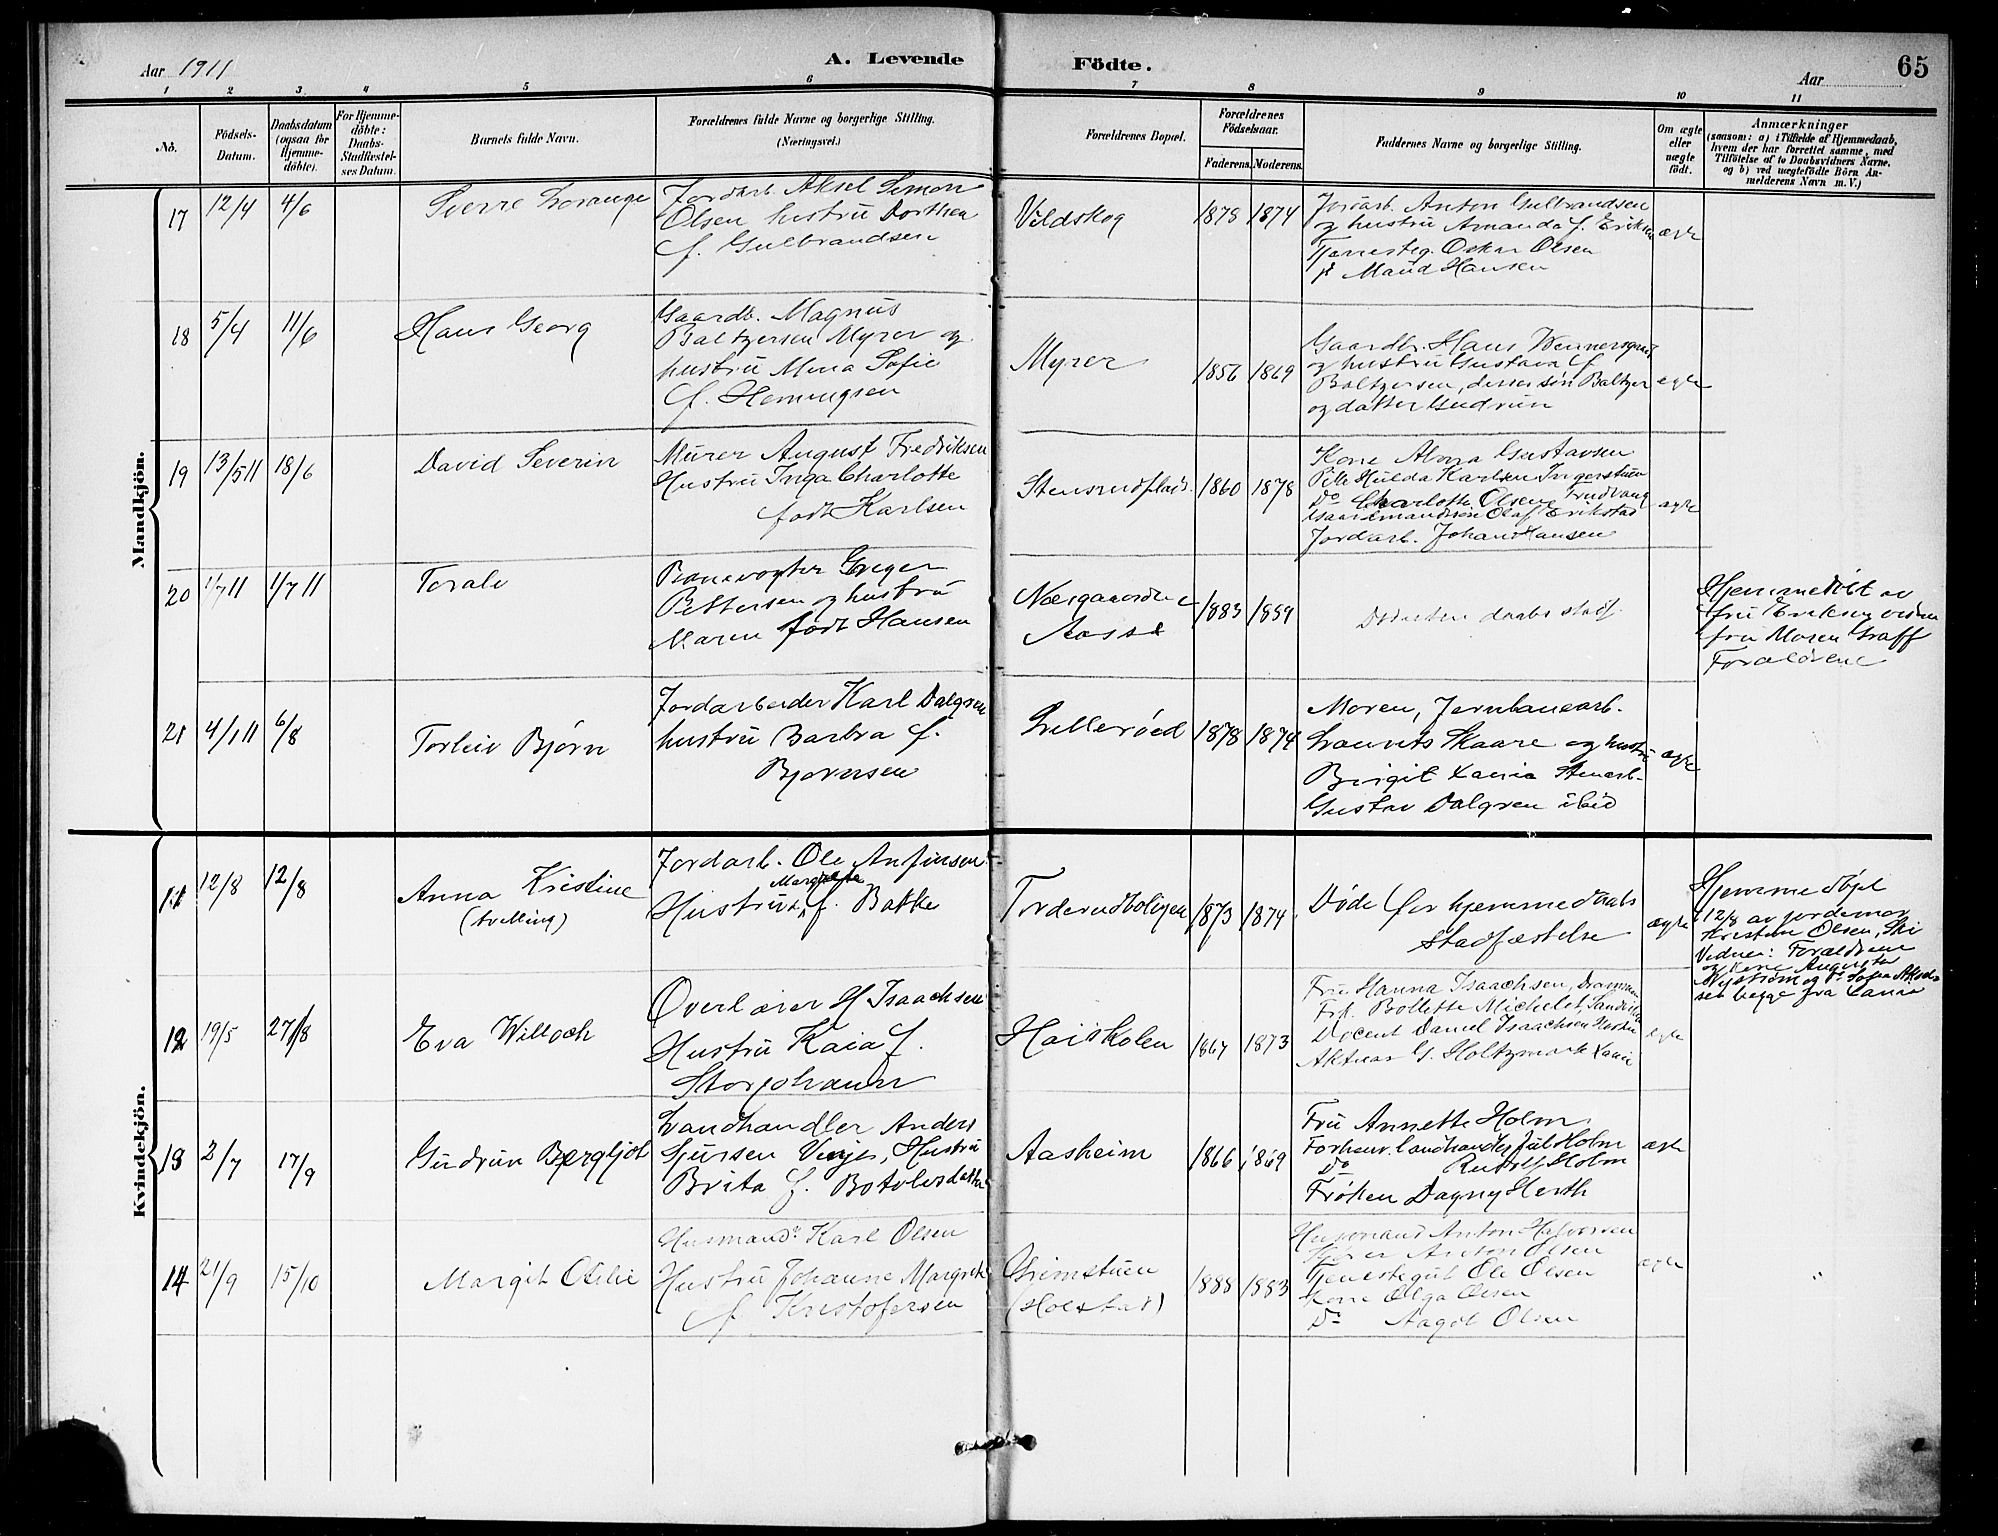 Aar 1911
A. Levende
Födte.
Aar
65
1 2 3 4 5 6 7 8 9 10 11
No.
Födsels-
Datum.
Daabsdatum
(ogsaa for
Hjemme-
døbte).
For Hjemme-
døbte:
Daabs-
Stadfæstel-
ses Datum.
Barnets fulde Navn.
Forældrenes fulde Navne og borgerlige Stilling.
(Næringsvei.)
Forældrenes Bopæl.
Forældrenes
Födselsaar.
Faderens. Moderens.
Faddernes Navne og borgerlige Stilling.
Om ægte
eller
uægte
födt.
Anmærkninger
(saasom: a) i Tilfælde af Hjemmedaab,
hvem der har forrettet samme, med
Tilföielse af to Daabsvidners Navne,
og b) ved uægtefödte Börn An-
melderens Navn m. V.)
Mandkjön.
17 12/4 4/6
Sverre Lorange
Jordarb. Aksel Simon
Olsen hustru Dorthea
f. Gulbrandsen
Vildskog
1878 1874
Jordarb. Anton Gulbrandsen
og hustru Amanda f. Eriksen
Tjenesteg. Oskar Olsen
p. Maud Hansen
ægte
18 5/4 11/6
Hans Georg
Gaardb. Magnus
Baltzersen Myrer og
hustru Mina Sofie
f. Hemingsen
Myrer
1856 1869
Gaardbr. Hans
og hustru Gustava f.
Baltzersen, deres søn Baltzer
og datter Gudrun
egte
19 13/5 11 18/6
David Severin
Murer August Fredriksen
Hustru Inga Charlotte
født Karlsen
Stensrudplads
1860 1878
Kone Alma Gustavsen
Pike Hulda Karlsen Ingerstuen
Do Charlotte Olsen Trudvang
Olaf Erikstad
Jordarb. Johan Hansen
ægte
20 1/7 11 1/7 11
Toralv
Banevogter Greger
Pettersen og hustru
Maren født Hansen
Næsgaardene
Aas
1883 1889
Død uten daabsstadf.
Hjemmedøbt av
fru Eriksen
fru Mosen Graff
Forældrene
21 4/1 11 6/8
Torleiv Bjørn
Jordarbeider Karl Dalgren
hustru Barbra f.
Bjørnsen
Lillerøed
1878 1874
Moren, Jernbanearb.
Laurits Skaare og hustru
Birgit Xania Stenarb.
Gustav Dalgren ibid
ægte
Kvindekjön.
11 12/8 12/8
Anna Kristine
(tvilling)
Jordarb. Ole Anfinsen
Margrete
Hustru f. Bakke
Torderudboligen
1873 1874
Døde før hjemmedaabs
stadfæstelse
ægte
Hjemmedøpt
12/8 av jordemor
Kristine Olsen, Ski
Vidner: Forældrene
og Kone Augusta
Nystrøm og Do Sofie
sen begge fra
12 19/5 27/8
Eva Willoch
Overlærer H Isaachsen
Hustru Kaia f.
Storjohann
Høiskolen
1867 1873
Fru Hanna Isaachsen, Drammen
Frk. Bollette Michelet, Sandviken
Docent Daniel Isaachsen
Aktuar G. Holtzmark Xania
egte
13 2/7 17/9
Gudrun Bergljot
Landhandler Anders
Sjursen Vinje, Hustru
Brita f. Botolvsdatter
Aasheim
1866 1869
Fru Annette Holm
Forhenv. landhandler Jul Holm
Do Rudolf Holm
Frøken Dagny Herth
ægte
14 21/9 15/10
Margit Otilie
Husmand Karl Olsen
Hustru Johanne Margrete
f. Kristofersen
Grimstuen
(Holstad)
1888 1883
Husmand Anton Halvorsen
Anton Olsen
Tjenestegut Ole Olsen
Kone Olga Olsen
Do Aagot Olsen
ægte